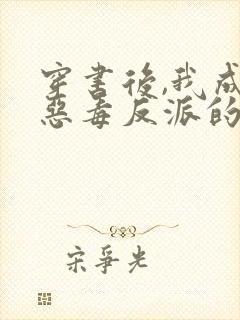 穿書後,我成
惡毒反派的
宋爭光